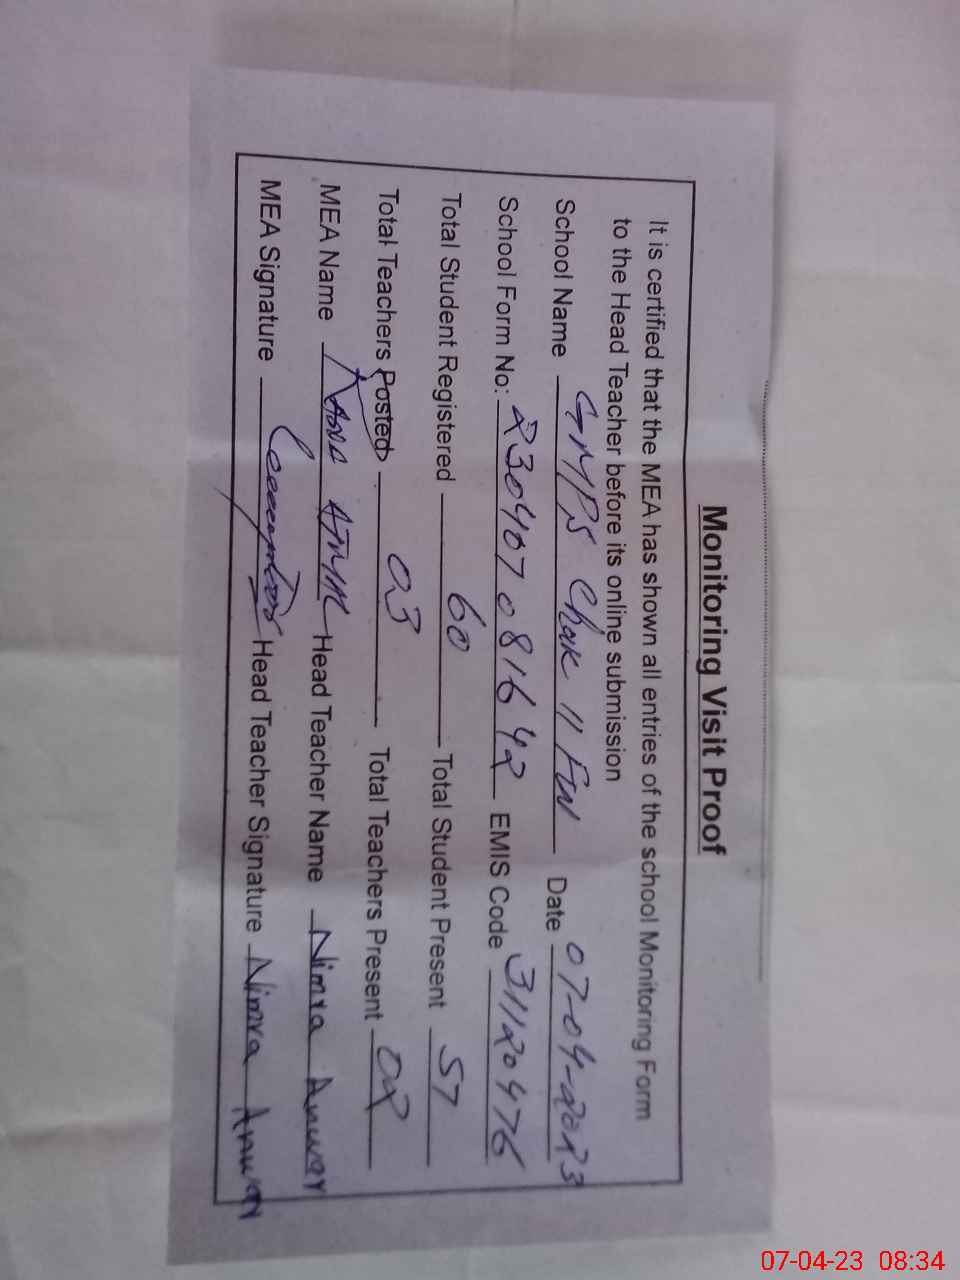 Monitoring Visit Proof
It is certified that the MEA has shown all entries of the school Monitoring Form
to the Head Teacher before its online submission
School Name GMPS Chak 11 FW Date 07-04-2023
School Form No: 230407081642 EMIS Code 31120476
Total Student Registered 60 Total Student Present 57
Total Teachers Posted 03 Total Teachers Present 02
MEA Name Head Teacher Name Nimra Anwar
MEA Signature Head Teacher Signature Nimra Anwar
07-04-23 08:34